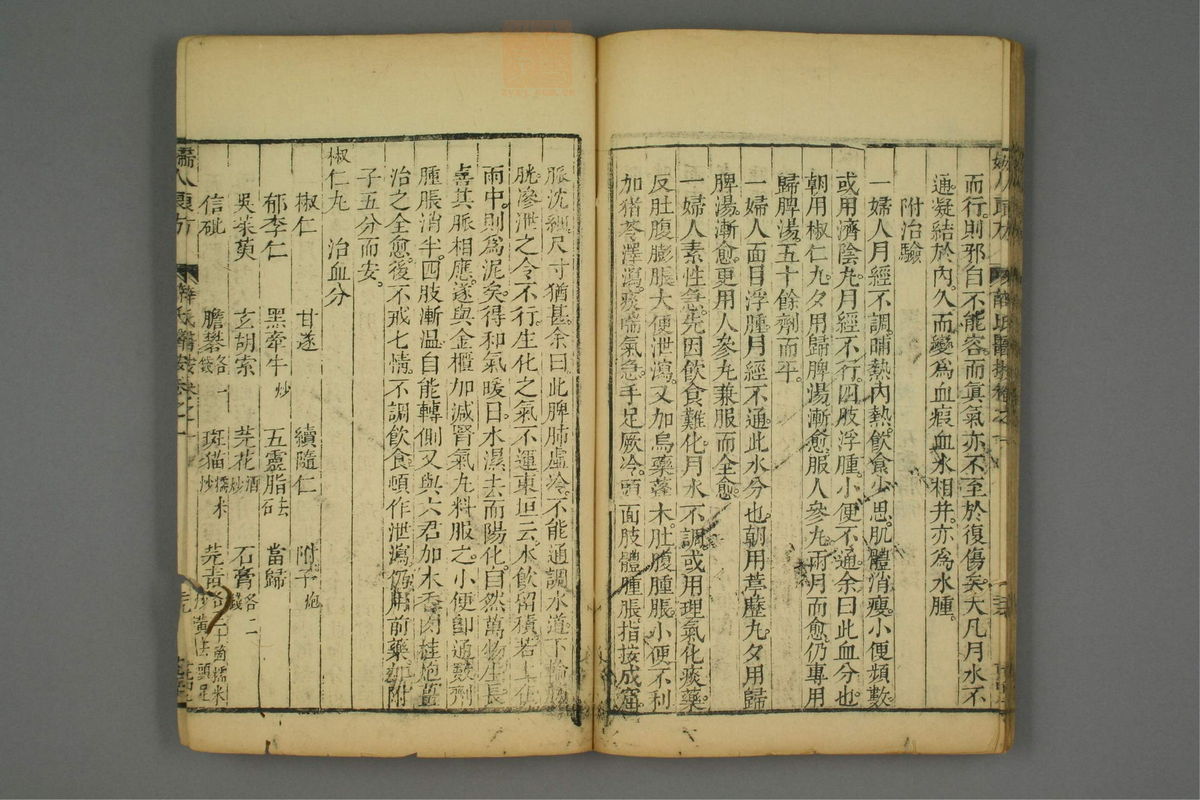 而行則邪自不能容而真氣亦不至於復傷矣大凡月水不
通凝結於內久而變為血瘕血水相并亦為水腫
附治驗
一婦人月經不調晡熱內熱飲食少思肌體消瘦小便頻數
或用濟陰丸月經不行四肢浮腫小便不通余曰此血分也
朝用椒仁丸夕用歸脾湯漸愈服人參丸兩月而愈仍專用
歸脾湯五十餘劑而平
一婦人面目浮腫月經不通此水分也朝用葶藶丸夕用歸
脾湯漸愈更用人參丸兼服而全愈
一婦人素性急先因飲食難化月水不調或用理氣化痰藥
反肚腹膨脹大便泄瀉又加烏藥蓬木肚腹腫脹小便不利
加猪苓澤瀉痰喘氣急手足厥冷頭面肢體腫脹指按成窟
脈沈細尺寸猶甚余曰此脾肺虛冷不能通調水道下輸膀
胱滲泄之令不行生化之氣不運東垣云水飲留積若土在
雨中則為泥矣得和氣暖日水濕去而陽化自然萬物生長
喜其脈相應遂與金櫃加減腎氣丸料服之小便卽通數劑
腫脹消半四肢漸溫自能轉側又與六君加木香肉桂炮薑
治之全愈後不戒七情不調飲食頓作泄瀉仍用前藥加附
子五分而安
椒仁丸 治血分
椒仁 甘遂 續隨仁 附子炮
郁李仁 黑牽牛炒 五靈脂去石 當歸
吳茱萸 玄胡索 芫花酒炒 石膏各二錢
信砒 膽礬各一錢 斑猫糯米炒 芫青各三十箇糯米炒黃去頭足
婦人良方 薛氏醫按卷之一